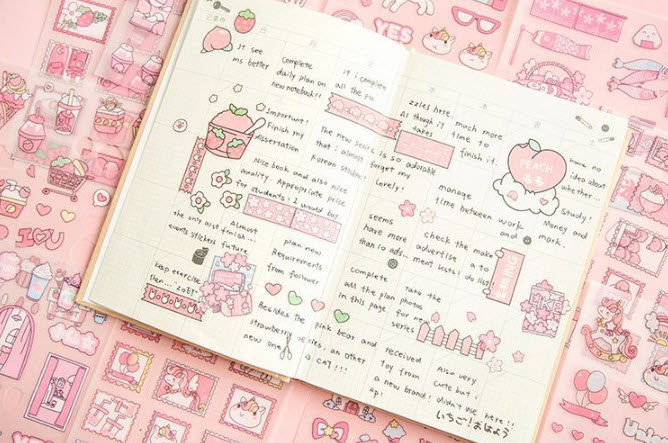 YES
It see
ms better
complete
daily plan on
new notebook!!
it i complete
all the pu
zzles here, much more
As though it time to
takes finish it.
Important!
Finish my
dissertation
The new book is so adorable
that i almost forget my
Korean study! lovely!
PEACH
もも
have no
idea about
whether...
Nice book and also nice
quality. Appropriate price
for students! I would buy
manage
time between
work
and
Study!
Money and
mark.
the only last
events stickers
Almost
finish...
future
plan new
Requirements
from follower
seems
have more
than 10 ads...
check the make
advertise a to
ment costs! do list
SPRING
keep exercise
then...
complete
all the plan
in this page.
take the
photos
for new
series
Besides the
strawberry series,
new one
pink bear and
an other
is CAT!!!
received
Toy from
a new brand!
Also very
cute but i
didn't use here!!
いちご!おはよう
I ♡ U